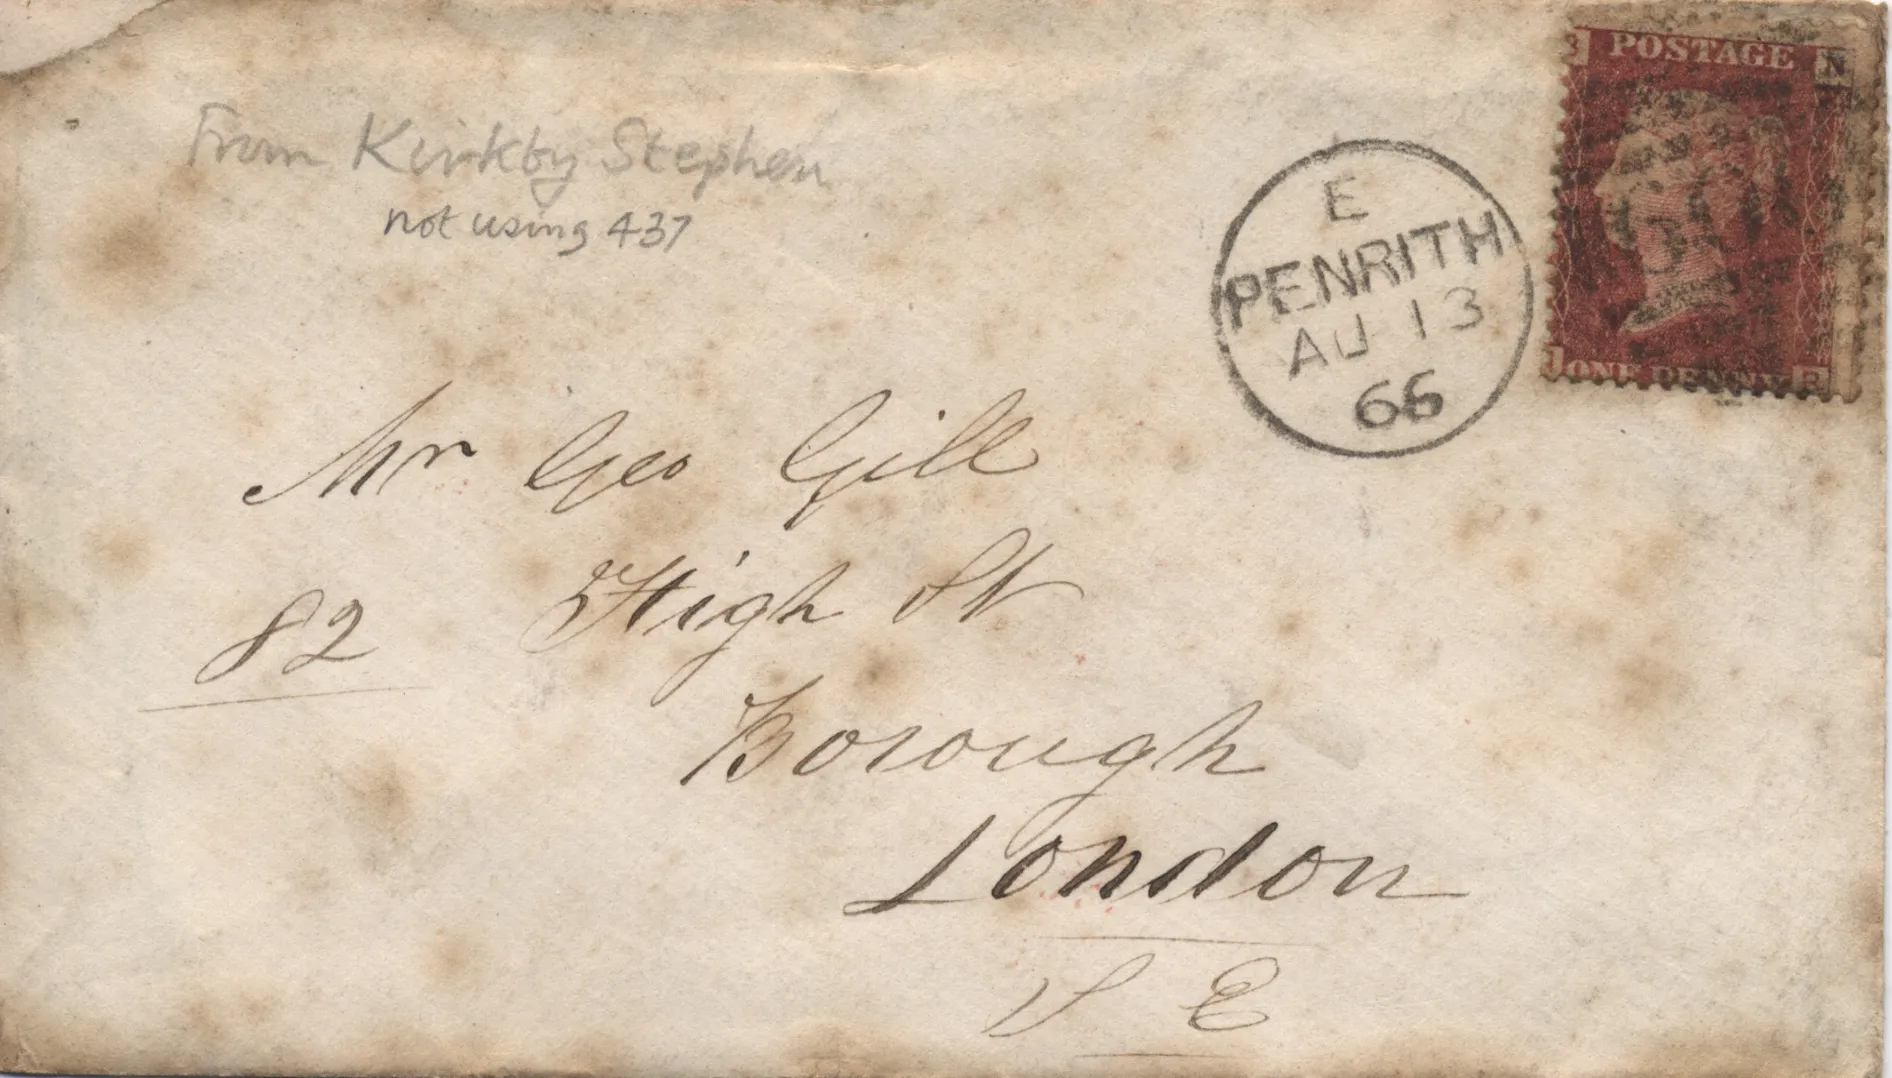 From Kirkby Stephen
not using 437
E
PENRITH
AU 13
66
POSTAGE
N
ONE PENNY
Mr Geo Gill
82 High St
Borough
London
S E